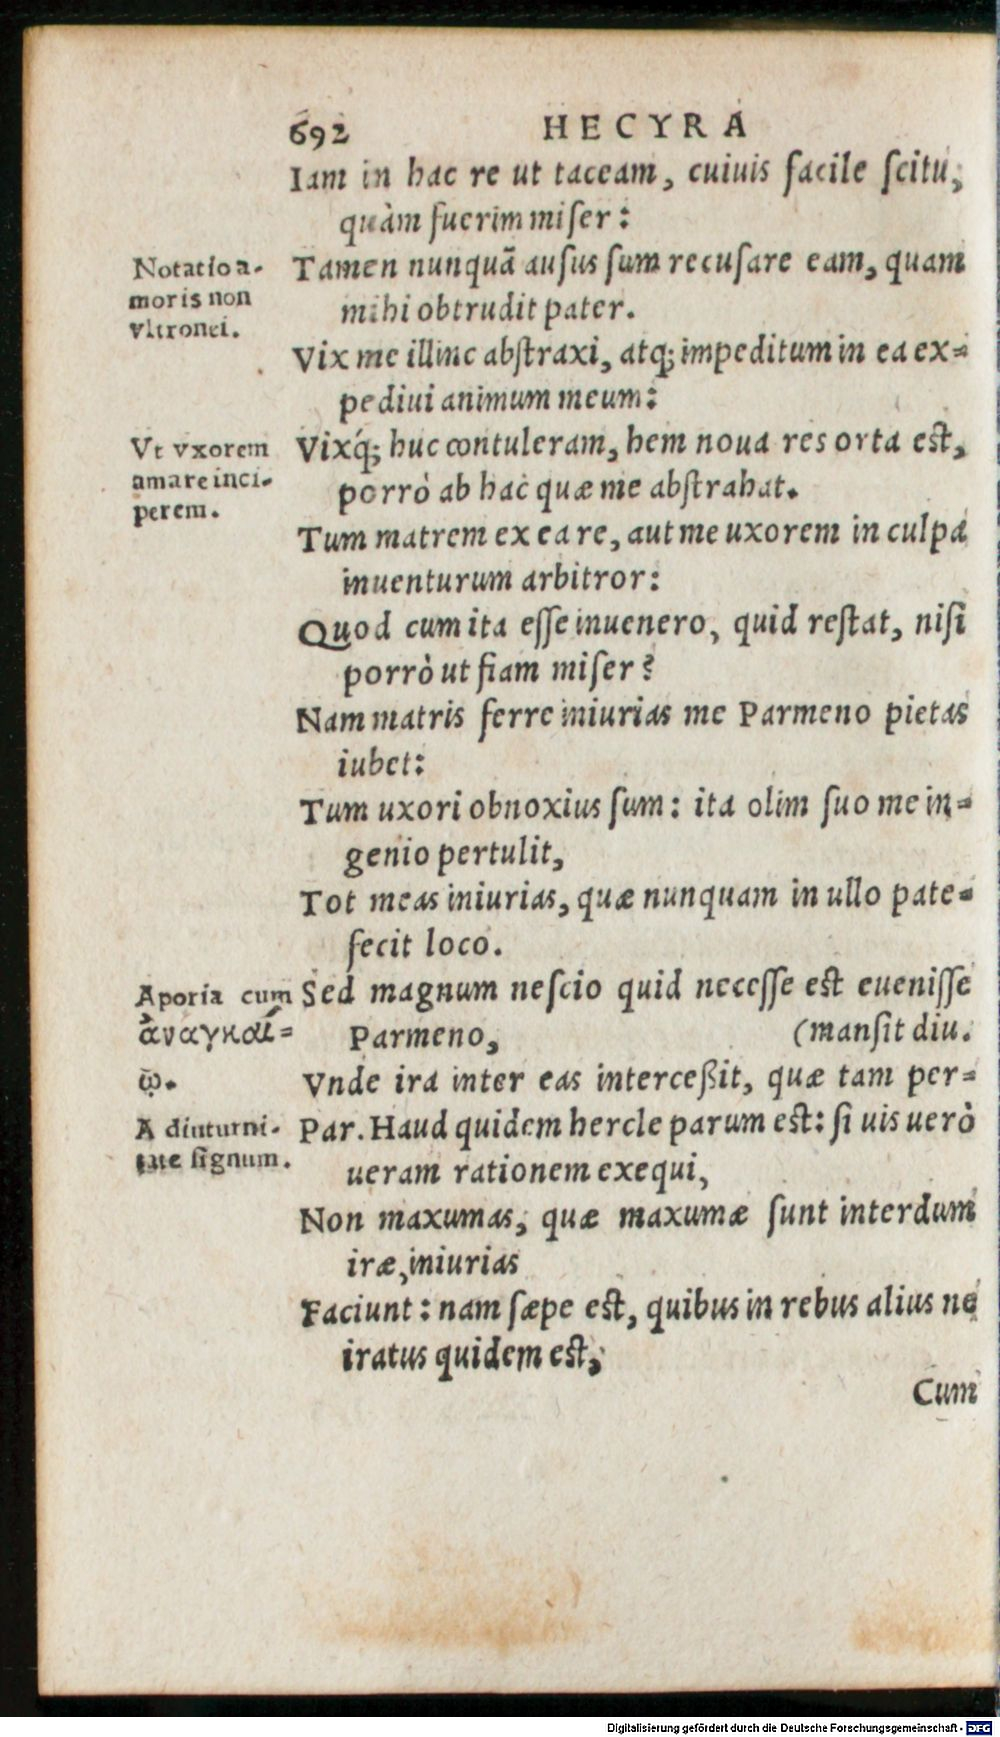 692 HECYRA
Iam in hac re ut taceam, cuiuis facile scitu,
quàm fuerim miser:
Notatio a-
moris non
vltronei.
Tamen nunquã ausus sum recusare eam, quam
mihi obtrudit pater.
Vix me illinc abstraxi, atq; impeditum in ea ex-
pediui animum meum:
Vt vxorem
amare inci-
perem.
Vixq́; huc contuleram, hem noua res orta est,
porrò ab hac quæ me abstrahat.
Tum matrem ex ea re, aut me uxorem in culpa
inuenturum arbitror:
Quod cum ita esse inuenero, quid restat, nisi
porrò ut fiam miser?
Nam matris ferre iniurias me Parmeno pietas
iubet:
Tum uxori obnoxius sum: ita olim suo me in-
genio pertulit,
Tot meas iniurias, quæ nunquam in ullo pate-
fecit loco.
Aporia cum
ἀναγκαί-
ῳ.
Sed magnum nescio quid necesse est euenisse
Parmeno, (mansit diu.
Vnde ira inter eas interceßit, quæ tam per-
A diuturni-
tate signum.
Par. Haud quidem hercle parum est: si uis uerò
ueram rationem exequi,
Non maxumas, quæ maxumæ sunt interdum
iræ, iniurias
Faciunt: nam sæpe est, quibus in rebus alius ne
iratus quidem est,
Cum
Digitalisierung gefördert durch die Deutsche Forschungsgemeinschaft - DFG